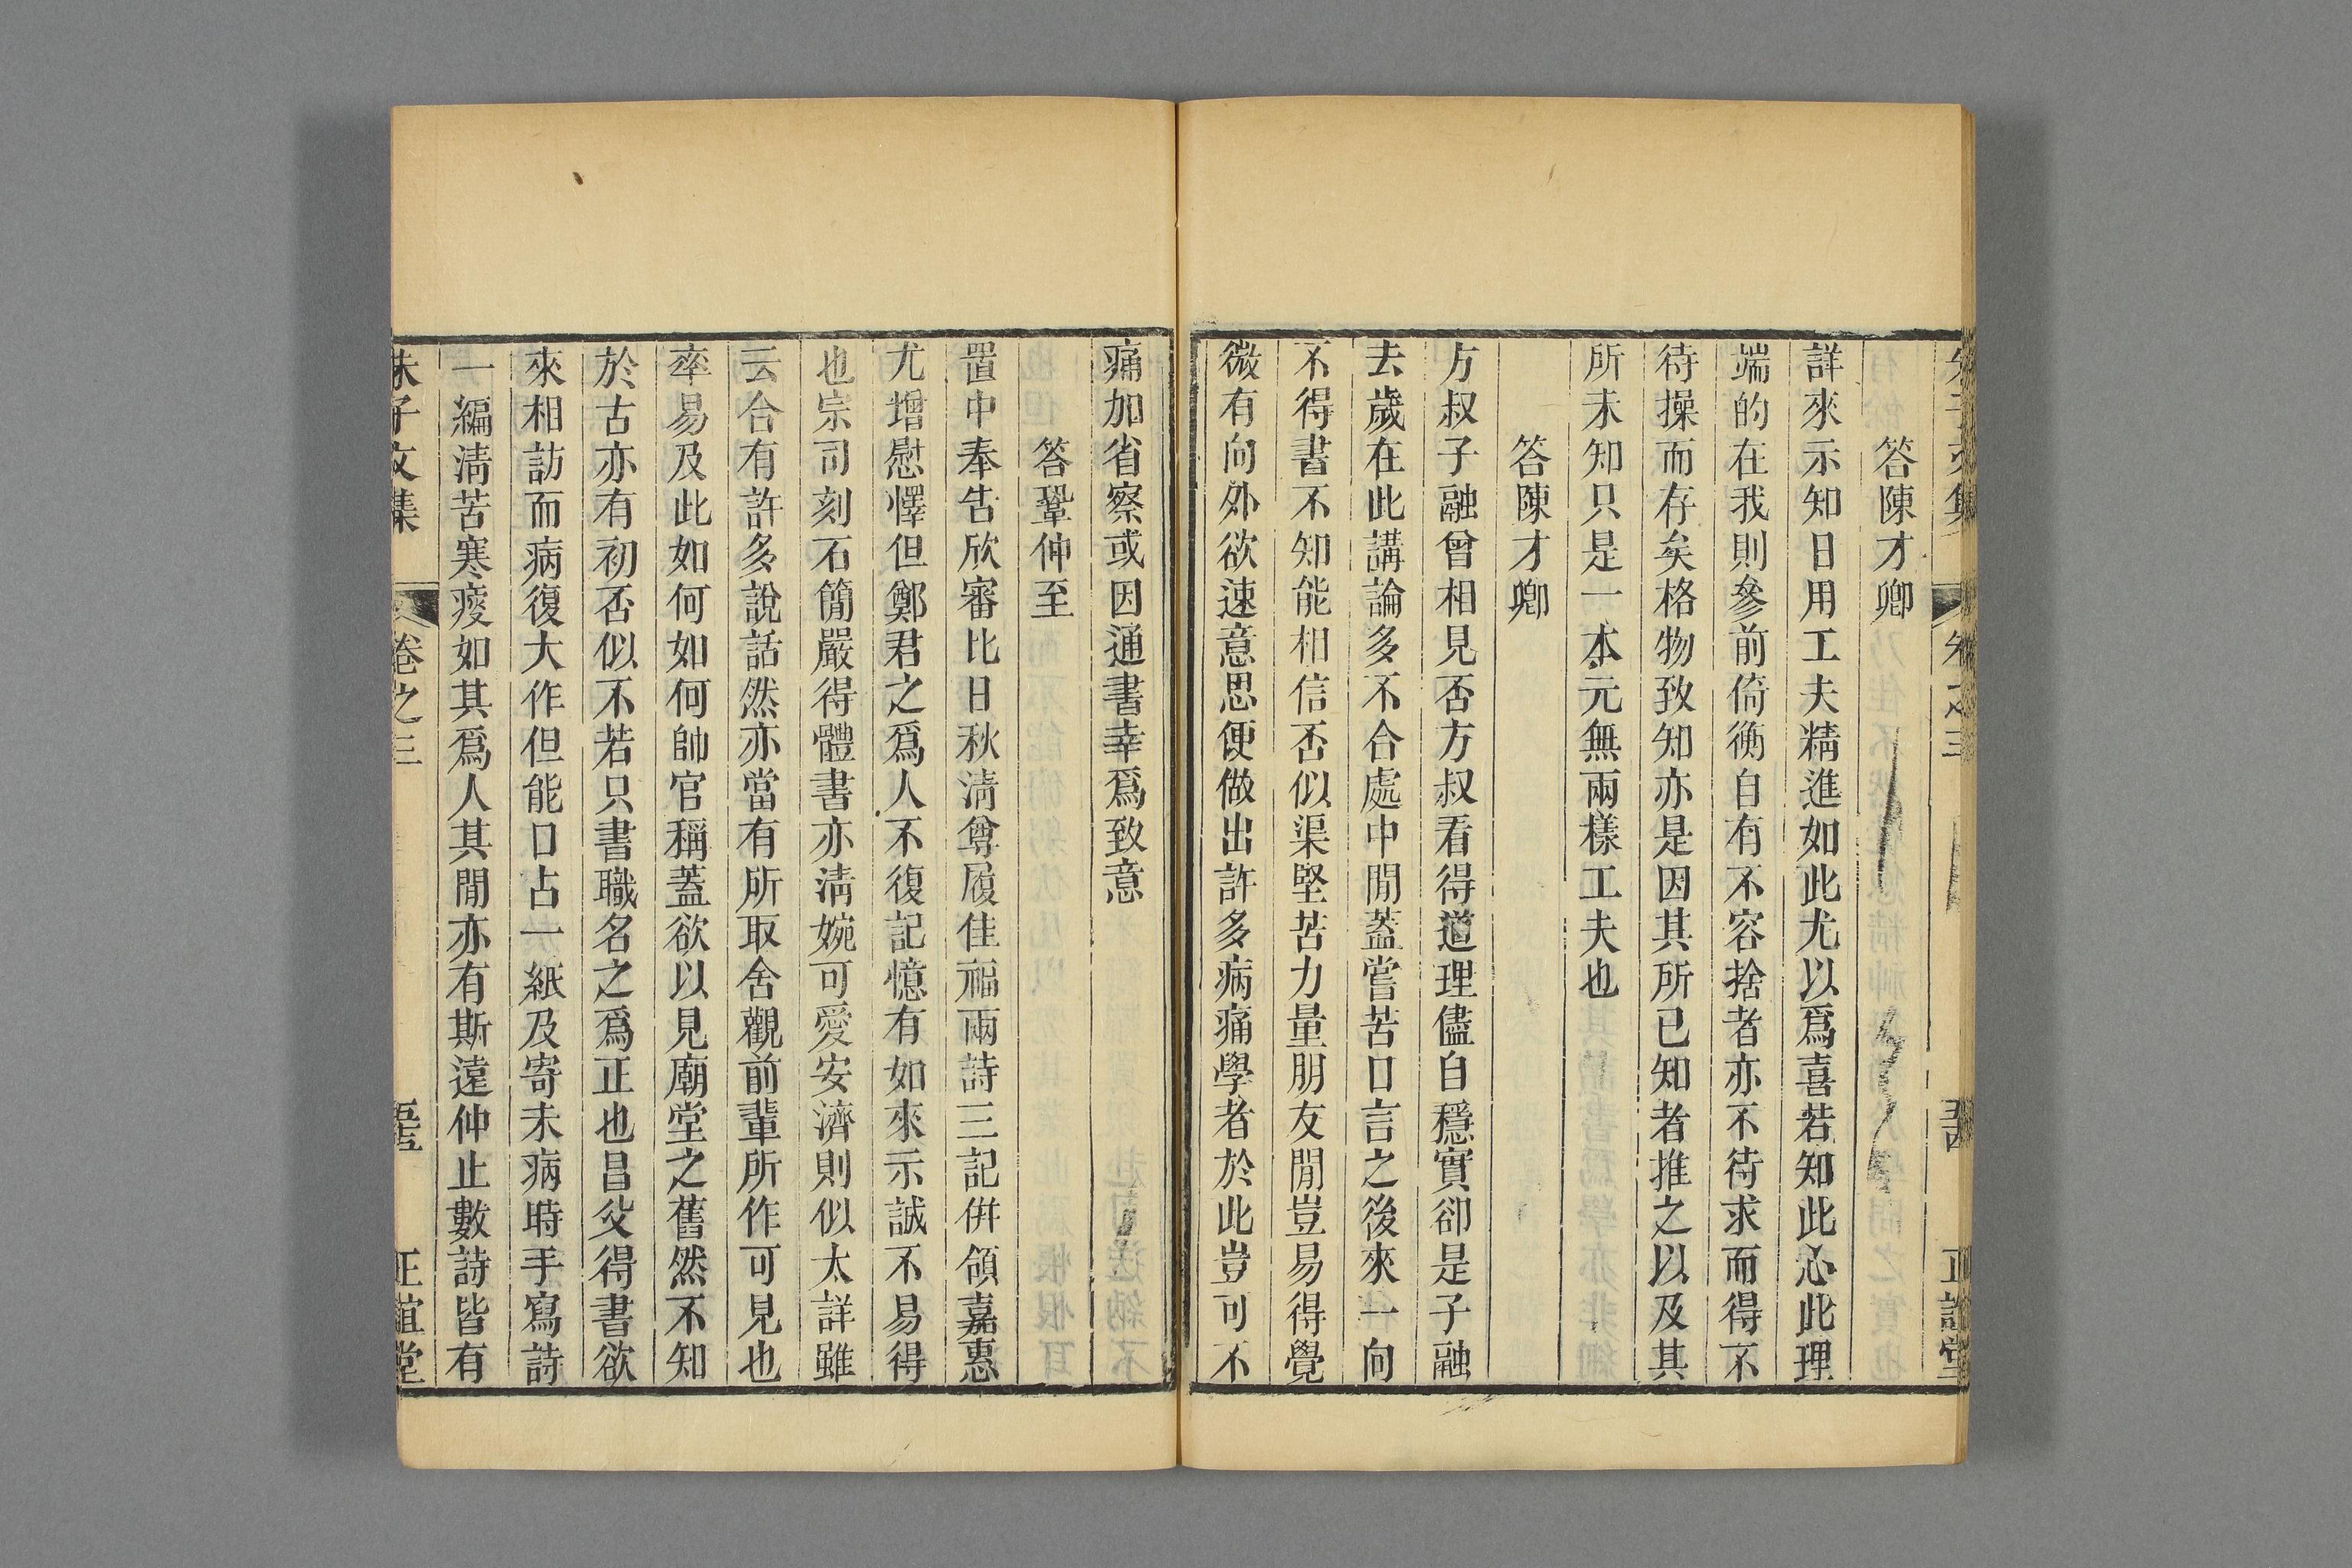 答陳才卿
詳來示知日用工夫精進如此尤以爲喜若知此心此理
端的在我則參前倚衡自有不容捨者亦不待求而得不
待操而存矣格物致知亦是因其所已知者推之以及其
所未知只是一本元無兩樣工夫也
答陳才卿
方叔子融曾相見否方叔看得道理儘自穩實卻是子融
去歲在此講論多不合處中閒蓋嘗苦口言之後來一向
不得書不知能相信否似渠堅苦力量朋友閒豈易得覺
微有向外欲速意思便做出許多病痛學者於此豈可不
痛加省察或因通書幸爲致意
答鞏仲至
置中奉告欣審比日秋淸尊履佳福兩詩三記倂領嘉惠
尤增慰懌但鄭君之爲人不復記憶有如來示誠不易得
也宗司刻石簡嚴得體書亦淸婉可愛安濟則似太詳雖
云合有許多說話然亦當有所取舍觀前輩所作可見也
率易及此如何如何帥官稱蓋欲以見廟堂之舊然不知
於古亦有初否似不若只書職名之爲正也昌父得書欲
來相訪而病復大作但能口占一紙及寄未病時手寫詩
一編淸苦寒瘦如其爲人其閒亦有斯遠仲止數詩皆有
朱子文集 卷之三 正誼堂